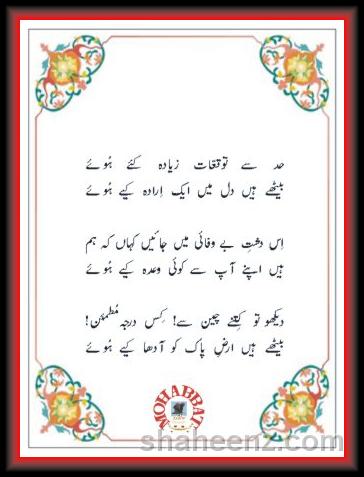 حد سے توقعات زیادہ کئے ہُوئے
بیٹھے ہیں دل میں ایک اِرادہ کیے ہُوئے
اِس دشتِ بے وفائی میں جائیں کہاں کہ ہم
ہیں اپنے آپ سے کوئی وعدہ کیے ہُوئے
دیکھو تو کِتنے چین سے! کِس درجہ مُطمئن!
بیٹھے ہیں ارضِ پاک کو آدھا کیے ہُوئے
MOHABBAT
shaheenz.com